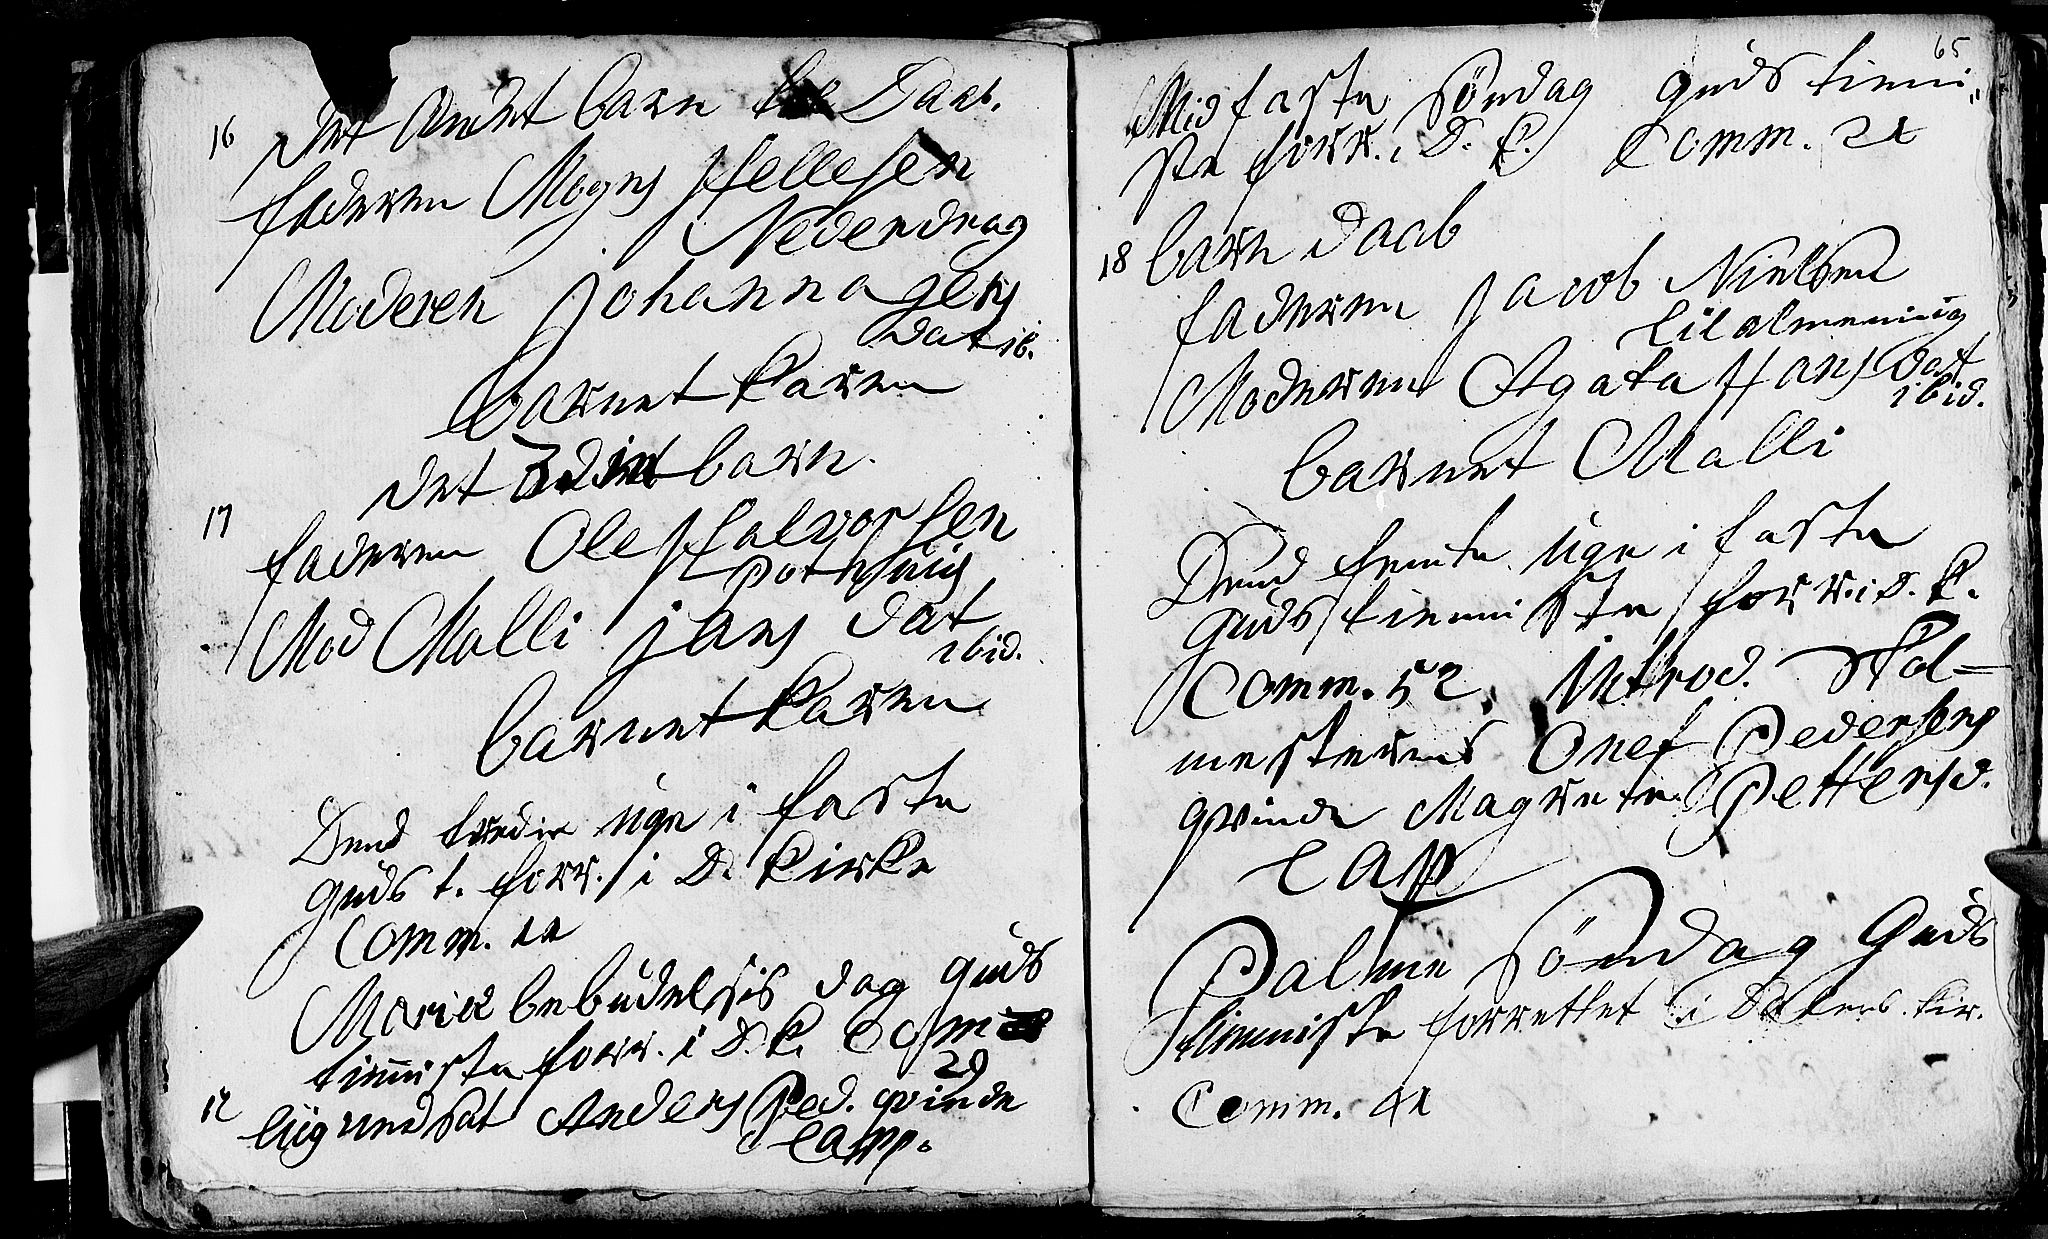 16 Det Andet barn til Daab.
faderen Mogns Hellesen
Nederdrag
Moderen Johanna Jens
Dat ib.
barnet Karen
Det 3die barn.
17 faderen Ole Halvorsen
Mod Malli Jans Dat
ibid.
barnet Karen
Dend tredie uge i faste
Guds t. forr. i D. Kirke
Comm. 11
Mariæ bebudelsis dag Guds
tienniste forr. i D. K. Com
29
12 liigrundsat Anders Ped. qvinde
Camp.
65
Midfaste Söndag Guds tieni„
ste forr. i D. K. Comm. 21
18 barn Daab
faderen Jacob Nielsen
Lilalmening
Moderen Agata Hans Dat
ibid.
barnet Malli
Dend femte uge i faste
Guds tienniste forr. i D. K.
Comm. 52. Introd. Skol=
mesterens Onef Pedersens
qvinde Magrete Pettersd.
Cap
Palme Söndag Guds
tienniste forrettet i Dalens Kir.
Comm. 41